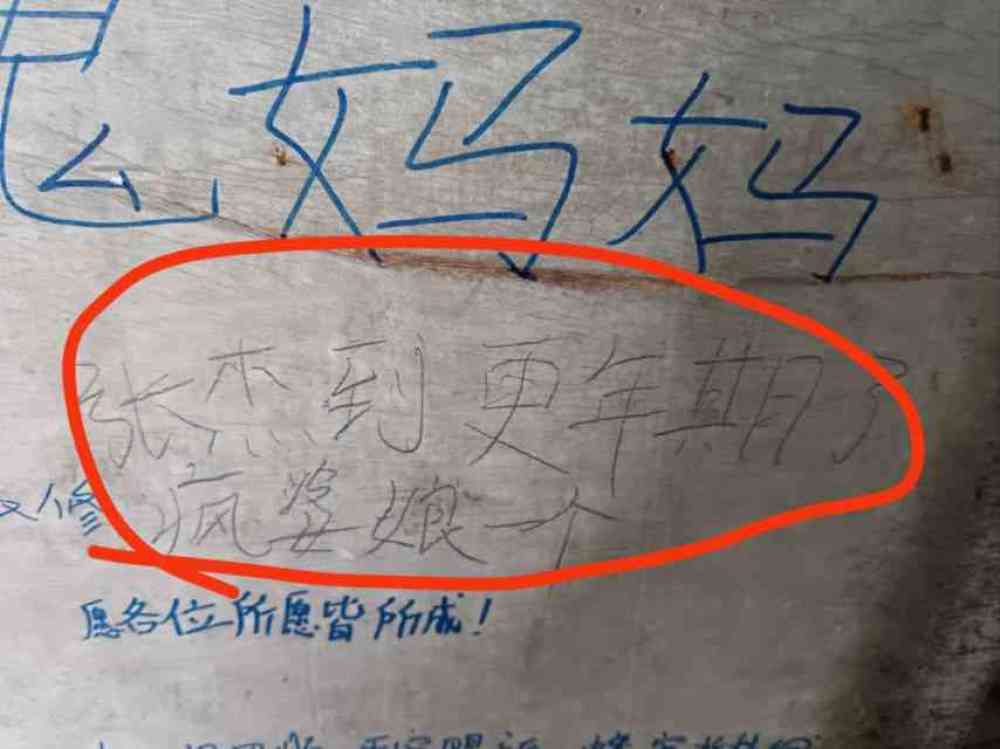 妈妈
张杰到更年期了
疯婆娘一个
人修
愿各位所愿皆所成!